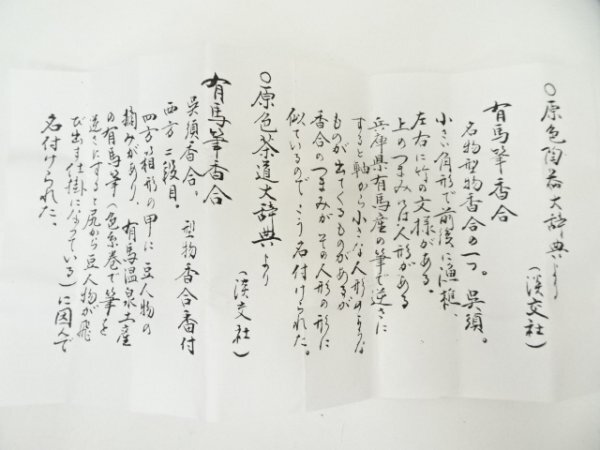 ○原色陶器大辞典より
（淡交社）
有馬筆香合
名物型物香合の一つ。呉須。
小さい角形で前後に漁樵、
左右に竹の文様がある。
上のつまみには人形がある
兵庫県有馬産の筆で逆さに
すると軸から小さな人形のような
ものが出てくるものがあるが
香合のつまみがその人形の形に
似ているので、こう名付けられた。
○原色茶道大辞典より
（淡交社）
有馬筆香合
呉須香合。型物香合番付
西方二段目。
四方の箱形の甲に豆人物の
摘みがあり、有馬温泉土産
の有馬筆（色糸巻で筆を
逆さにすると尻から豆人物が飛
び出す仕掛になっている）に因んで
名付けられた。